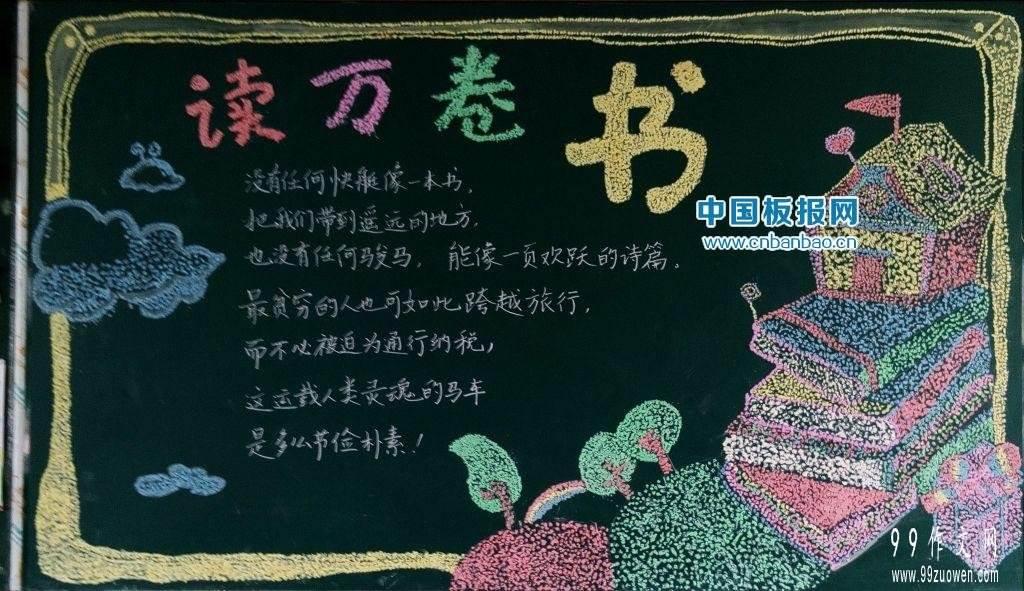 读万卷书
没有任何快艇像一本书，
把我们带到遥远的地方。
也没有任何骏马，能像一页欢跃的诗篇。
最贫穷的人也可如此跨越旅行，
而不必被迫为通行纳税，
这运载人类灵魂的马车
是多么节俭朴素！
中国板报网
www.cnbanbao.cn
99作文网
www.99zuowen.com